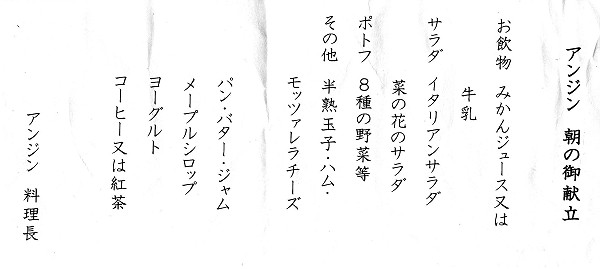 アンジン　朝の御献立
お飲物　みかんジュース又は
牛乳
サラダ　イタリアンサラダ
菜の花のサラダ
ポトフ　８種の野菜等
その他　半熟玉子・ハム・
モッツァレラチーズ
パン・バター・ジャム
メープルシロップ
ヨーグルト
コーヒー又は紅茶
アンジン　料理長